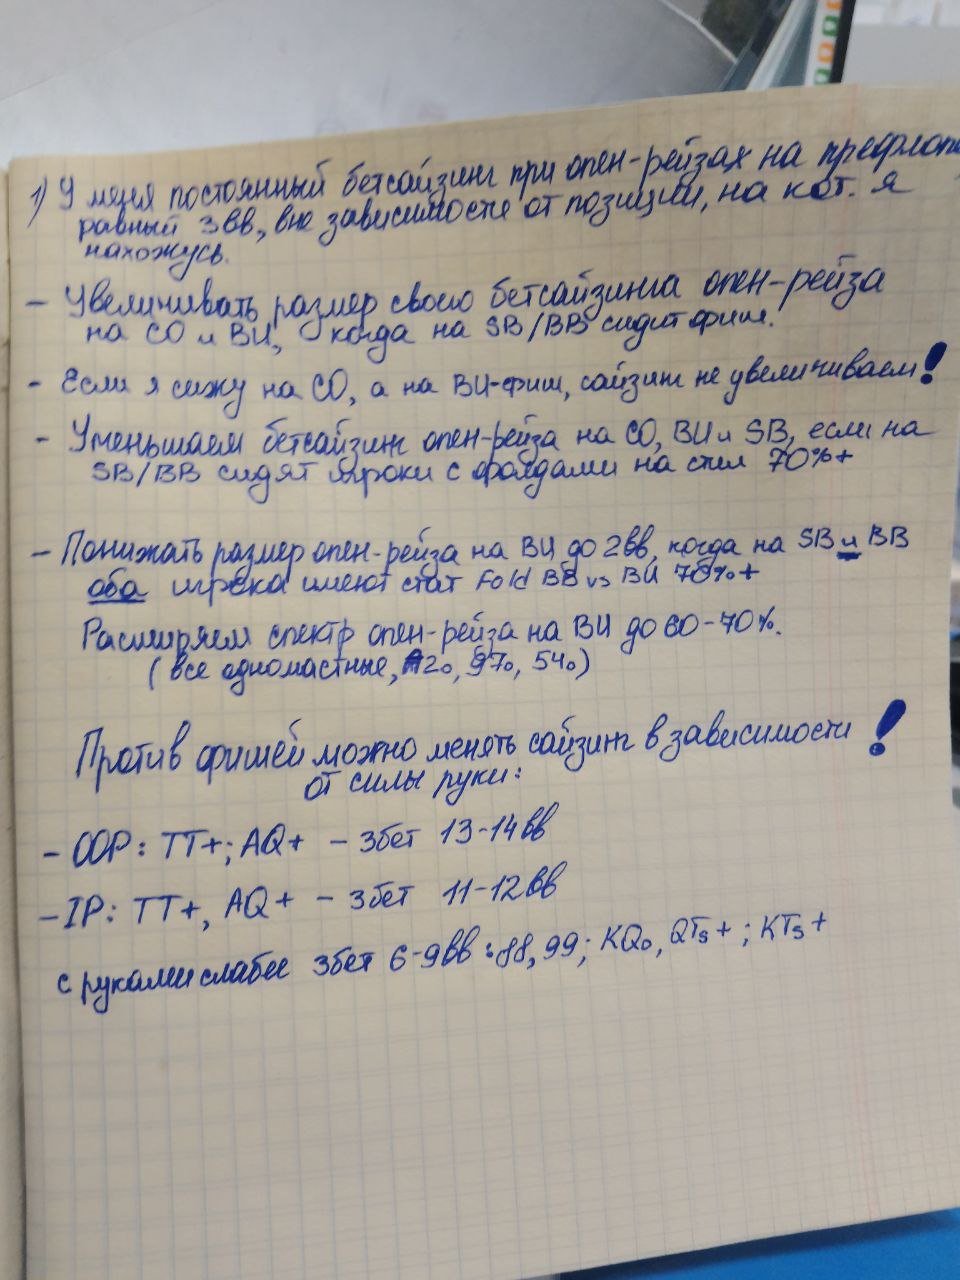 1) У меня постоянный бетсайзинг при опен-рейзах на префлопе
равный 3BB, вне зависимости от позиции, на кот. я
нахожусь.
- Увеличивать размер своего бетсайзинга опен-рейза
на CO и BU, когда на SB/BB сидит фиш.
- Если я сижу на CO, а на BU-фиш, сайзинг не увеличиваем!
- Уменьшаем бетсайзинг опен-рейза на CO, BU и SB, если на
SB/BB сидят игроки с фолдами на стил 70%+
- Понижать размер опен-рейза на BU до 2BB, когда на SB и BB
оба игрока имеют стат Fold BB vs BU 70%+
Расширяем спектр опен-рейза на BU до 60-70%.
(все одномастные, A2o, 97o, 54o)
Против фишей можно менять сайзинг в зависимости !
от силы руки:
- OOP: TT+; AQ+ - 3бет 13-14BB
- IP: TT+, AQ+ - 3бет 11-12BB
с руками слабее 3бет 6-9BB: 88, 99; KQo, QTs+; KTs+